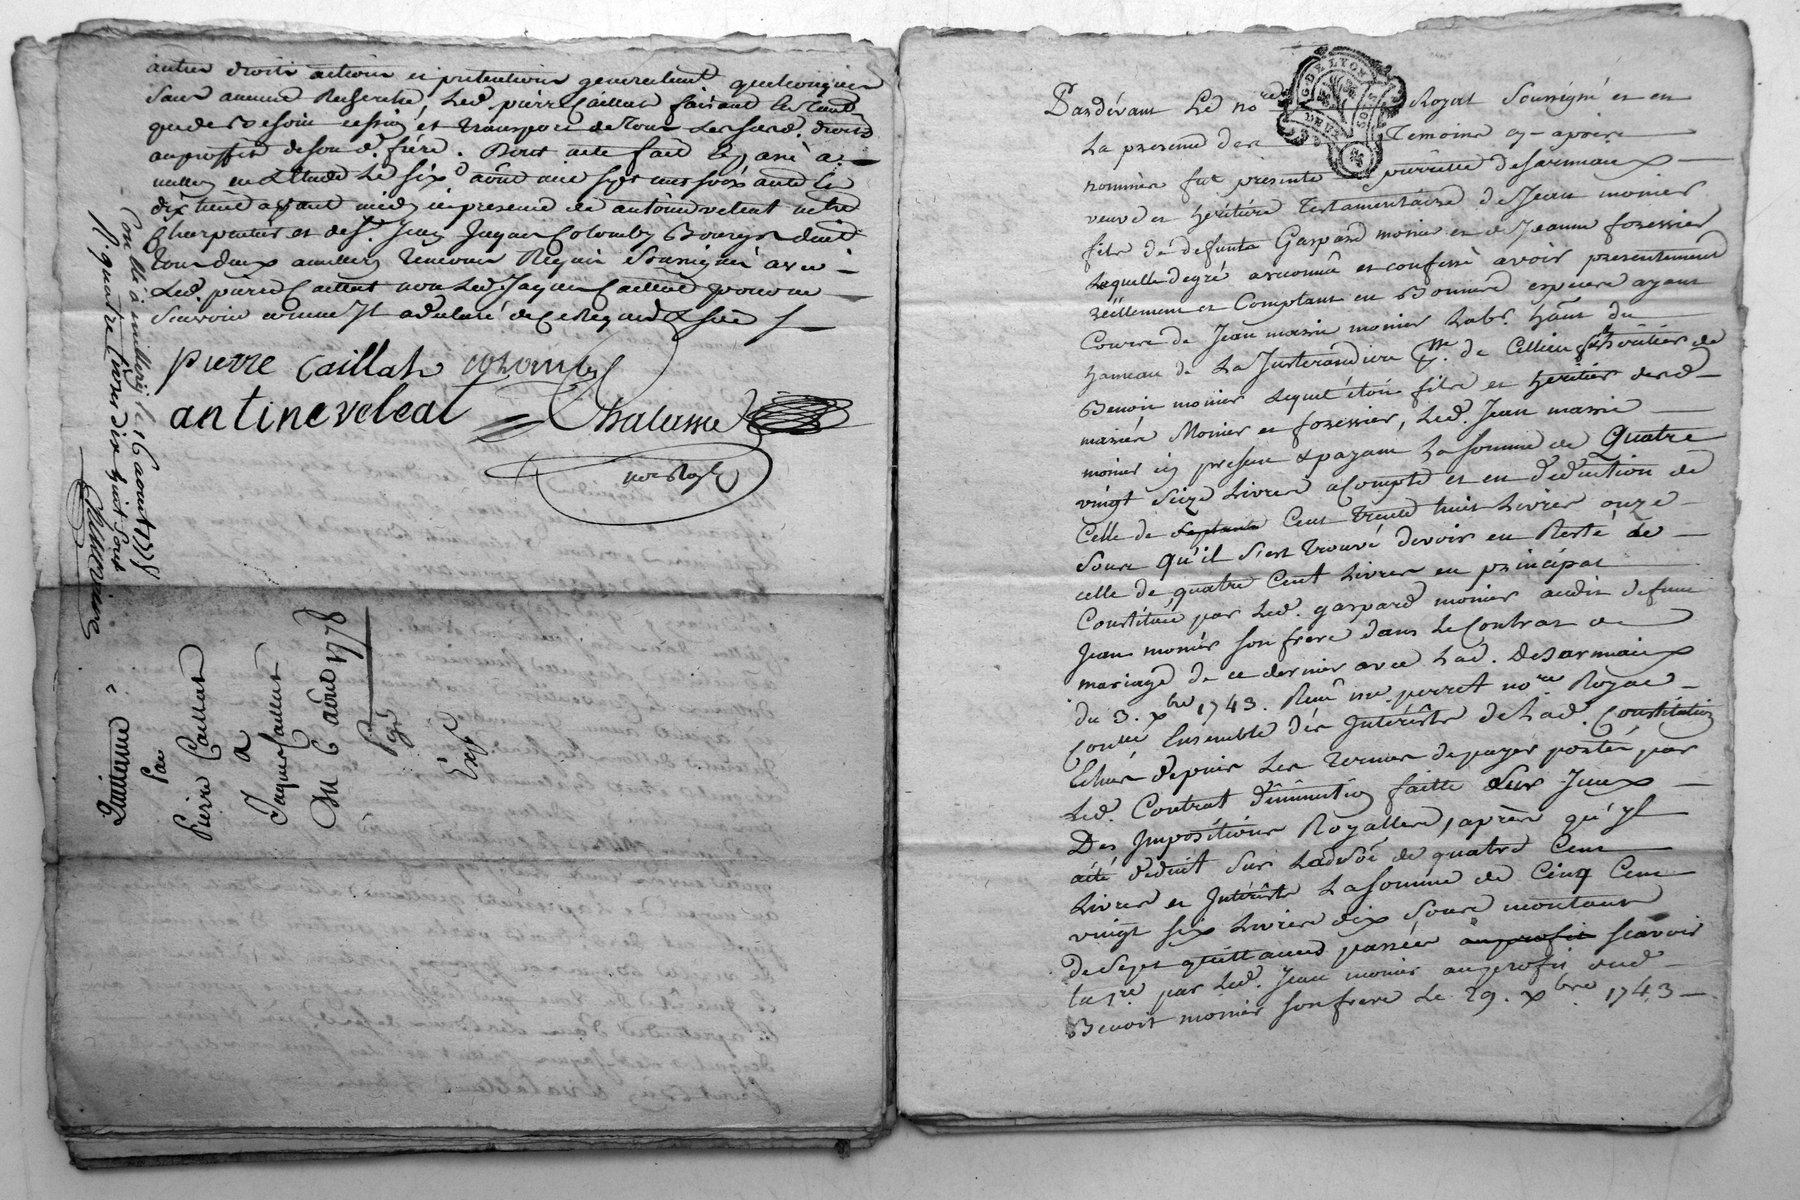 autres droits actions et pretentions generallement quelconques
sans aucune Recherche, Led. pierre Caillat faisant En tant
que de besoin cession et transport de tous Les susd. droits
au proffit de son d. frère. Dont acte fait
Etude Le six aoûst mil sept cent soix ante
avant midy en presence de antoine veleat
Charpentier et de S.r Jean Jaques Colomby Bourgeois
tous deux temoins Requis Soussignés avec
Led. pierre Caillat non Led Jaques Caillat pour ne
Scavoir comme Il a declaré de ce
pierre caillat colomby
antine veleat Chalusse
no.re Royal
Con.llé à millery le 16 aoust 1778
R. quatre Livres dix huit sous
Quittance
Par
Pierre Caillat
a
Jaques Caillat
Du 6 août 1778
Exp.é
G. DE LYON
DEUX SOLS
Pardevant Le no.re Royal Soussigné et en
La presence des Temoins cy-après
nommés fut presente pierrette desarmaux
veuve et heritière Testamentaire de Jean monier
fils de defunts Gaspard monier et de Jeanne foressier
Laquelle de gré a reconnu et confessé avoir presentement
réellement et Comptant en Bonnes especes ayant
Cours de Jean marie monier Lab.r hab.t du
hameau de La
Benoit monier Lequel étoit fils et heritier desd.
mariés Monier et foressier, Led. Jean marie
monier icy present & payant La somme de Quatre
vingt Seize Livres acompte et en deduction de
Celle de Cent trente trois Livres onze
Sous qu'il s'est trouvé devoir en Reste de
celle de quatre Cent Livres en principal
Constituée par Led. gaspard monier audit defunt
Jean monier son frere dans Le Contrat de
mariage de ce dernier avec Lad. Desarmaux
du 3. x.bre 1743. Reçû me perret no.re Royal
Con.llé Ensemble des Intérêts de Lad. Constitution
Echus depuis Les termes de payer portés par
Led. Contrat diminution faitte Sur Iceux
Des Impositions Royalles, après qu'il
a été deduit sur de quatre Cent
Livres et Intérêts La somme de Cinq Cent
vingt six Livres dix Sous montant
de Sept quittances passées au profit scavoir
La 1.re par Led. Jean monier au profit dud.
Benoit monier son frere Le 29. x.bre 1743